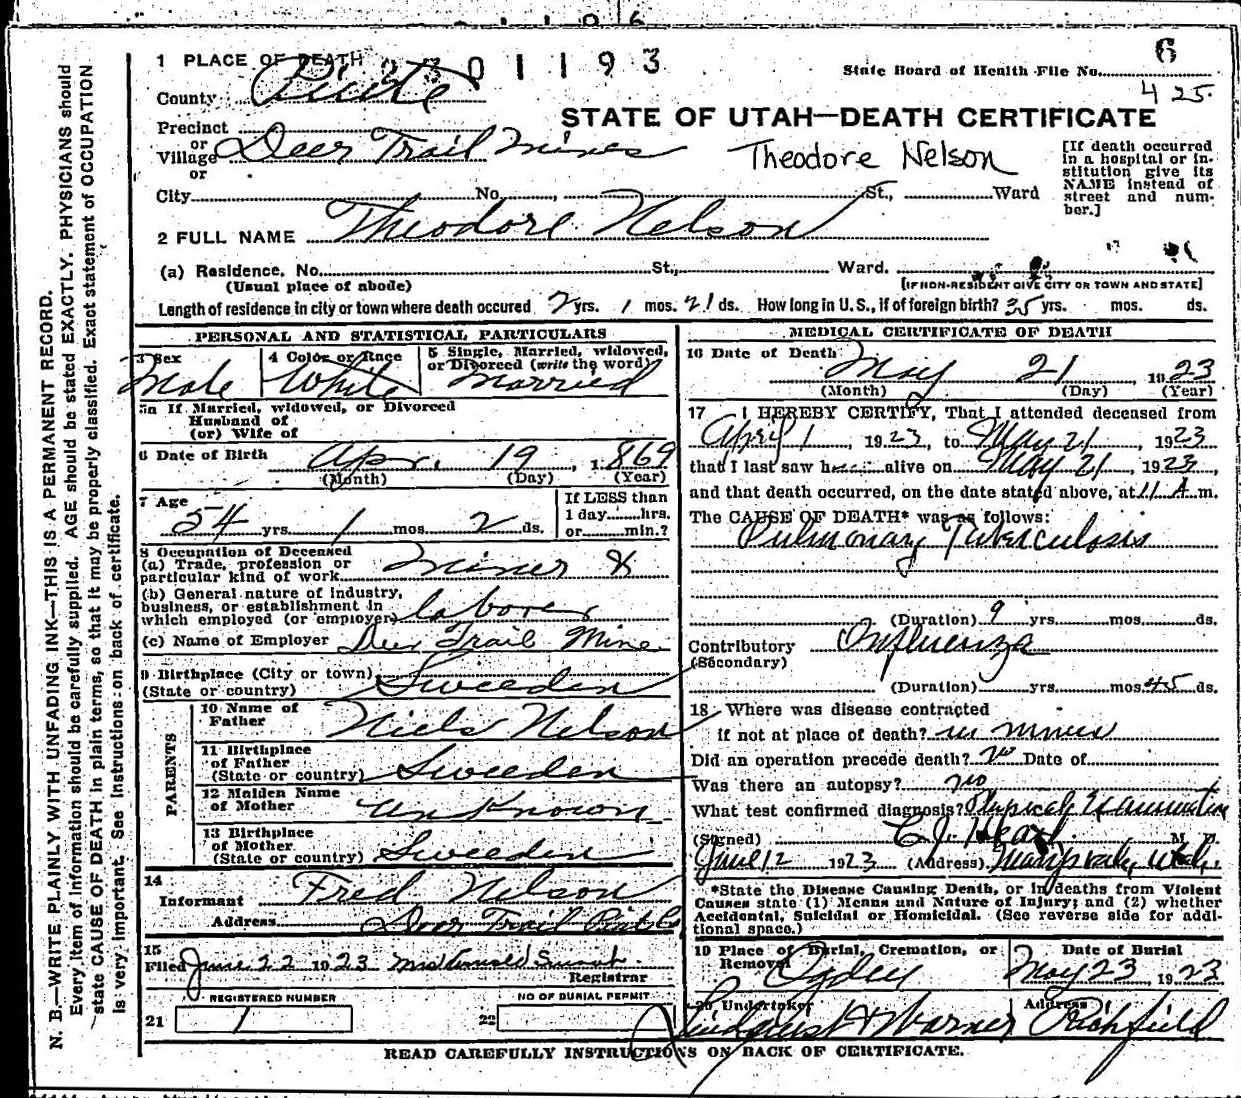 1 PLACE OF DEATH 2301193
State Board of Health File No. 6
425.
County Piute
STATE OF UTAH—DEATH CERTIFICATE
Precinct
or
Village Deer Trail Mines
or
Theodore Nelson
[If death occurred in a hospital or institution give its NAME instead of street and number.]
City No., St., Ward
2 FULL NAME Theodore Nelson
(a) Residence. No. St., Ward.
(Usual place of abode) [IF NON-RESIDENT GIVE CITY OR TOWN AND STATE]
Length of residence in city or town where death occured 2 yrs. 1 mos. 21 ds. How long in U. S., if of foreign birth? 35 yrs. mos. ds.
PERSONAL AND STATISTICAL PARTICULARS
3 Sex
Male
4 Color or Race
White
5 Single, Married, widowed, or Divorced (write the word)
Married
5a If Married, widowed, or Divorced
Husband of
(or) Wife of
6 Date of Birth Apr. 19, 1869
(Month) (Day) (Year)
7 Age
54 yrs. 1 mos. 2 ds.
If LESS than
1 day......hrs.
or......min.?
8 Occupation of Deceased
(a) Trade, profession or
particular kind of work Miner &
(b) General nature of industry,
business, or establishment in
which employed (or employer) laborer
(c) Name of Employer Deer Trail Mine
9 Birthplace (City or town)
(State or country) Sweeden
PARENTS
10 Name of
Father Niels Nelson
11 Birthplace
of Father
(State or country) Sweeden
12 Maiden Name
of Mother Unknown
13 Birthplace
of Mother
(State or country) Sweeden
14
Informant Fred Nelson
Address Deer Trail Piute Co
15
Filed June 22 1923
Registrar
REGISTERED NUMBER
21 1
NO OF BURIAL PERMIT
22
MEDICAL CERTIFICATE OF DEATH
16 Date of Death May 21, 1923
(Month) (Day) (Year)
17 I HEREBY CERTIFY, That I attended deceased from
April 1, 1923, to May 21, 1923
that I last saw h alive on May 21, 1923,
and that death occurred, on the date stated above, at 11 A. m.
The CAUSE OF DEATH* was as follows:
Pulmonary Tuberculosis
(Duration) 9 yrs. mos. ds.
Contributory Influenza
(Secondary)
(Duration) yrs. mos. 45 ds.
18 Where was disease contracted
if not at place of death? in mines
Did an operation precede death? no Date of
Was there an autopsy? no
What test confirmed diagnosis? Physical Examination
(Signed) M. D.
June 12 1923 (Address) Marysvale, Utah.
*State the Disease Causing Death, or in deaths from Violent
Causes state (1) Means and Nature of Injury; and (2) whether
Accidental, Suicidal or Homicidal. (See reverse side for addi-
tional space.)
19 Place of Burial, Cremation, or
Removal Ogden
Date of Burial
May 23, 1923
20 Undertaker Lindquist & Warner
Address Richfield
READ CAREFULLY INSTRUCTIONS ON BACK OF CERTIFICATE.
N. B.—WRITE PLAINLY WITH UNFADING INK—THIS IS A PERMANENT RECORD.
Every item of information should be carefully supplied. AGE should be stated EXACTLY. PHYSICIANS should
state CAUSE OF DEATH in plain terms, so that it may be properly classified. Exact statement of OCCUPATION
is very important. See instructions on back of certificate.